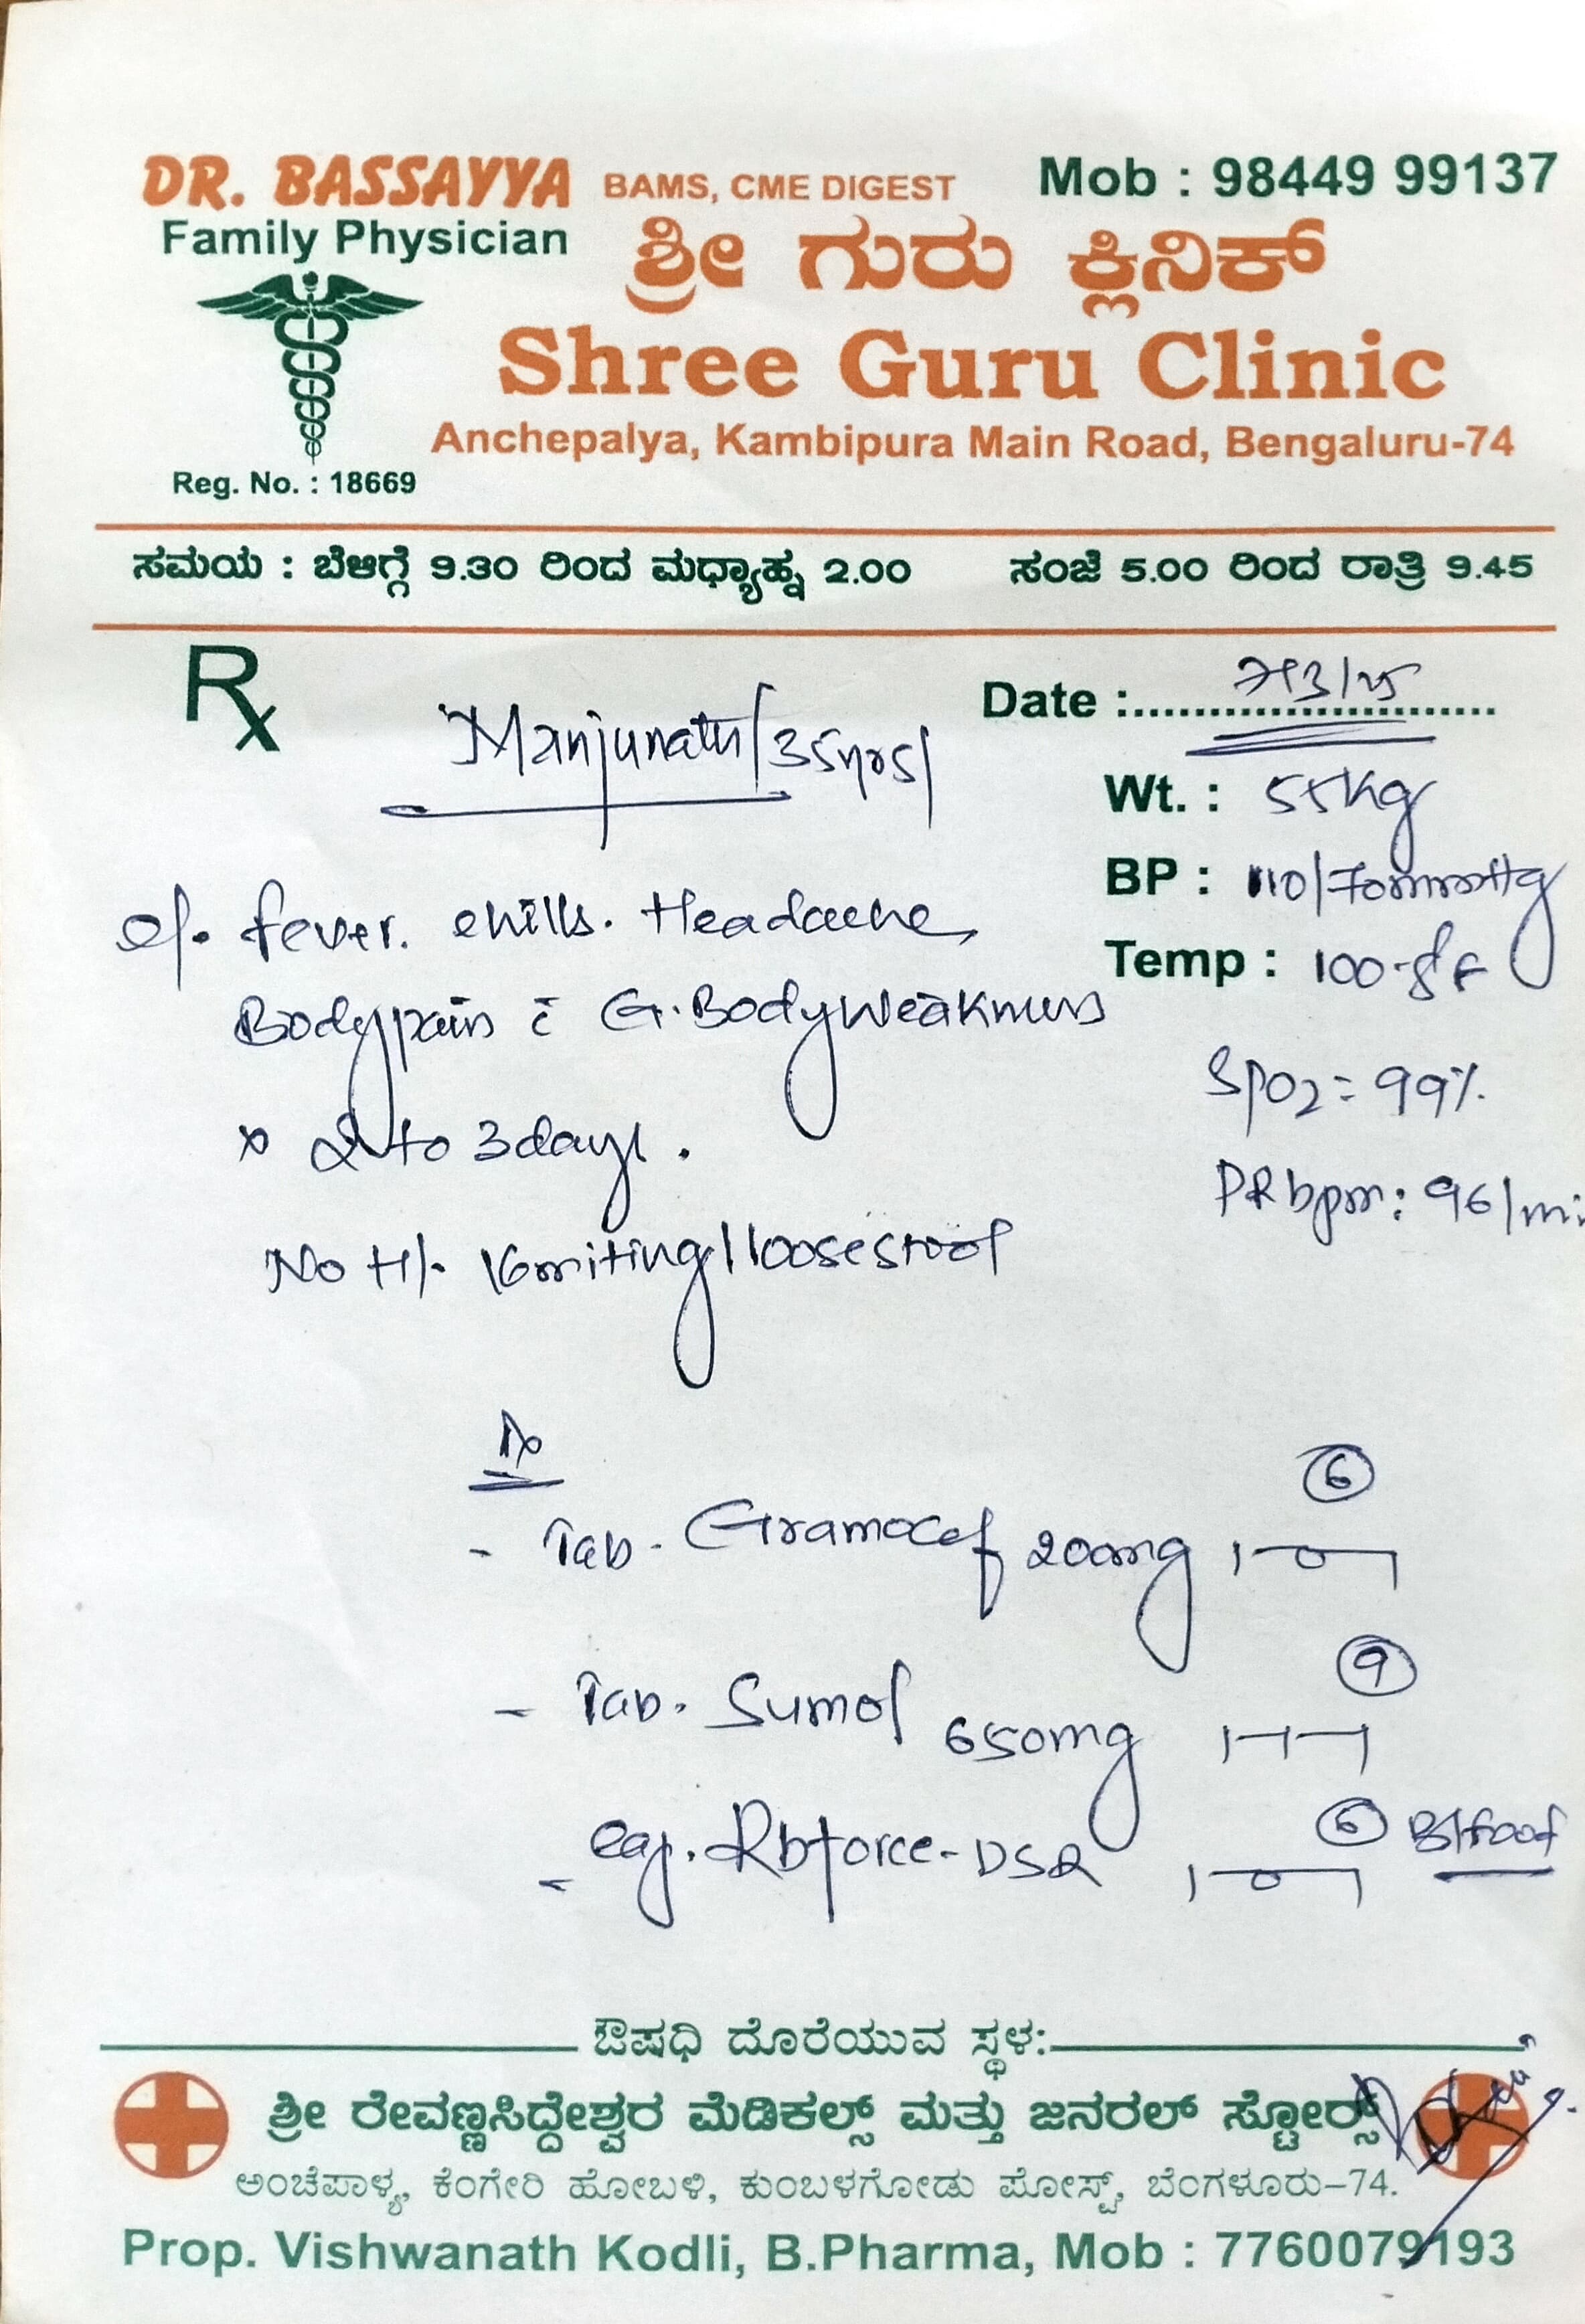 DR. BASSAYYA BAMS, CME DIGEST Mob : 98449 99137
Family Physician
ಶ್ರೀ ಗುರು ಕ್ಲಿನಿಕ್
Shree Guru Clinic
Anchepalya, Kambipura Main Road, Bengaluru-74
Reg. No. : 18669
ಸಮಯ : ಬೆಳಗ್ಗೆ 9.30 ರಿಂದ ಮಧ್ಯಾಹ್ನ 2.00 ಸಂಜೆ 5.00 ರಿಂದ ರಾತ್ರಿ 9.45
Rx
Date : 7/3/25
Manjunath/35yrs/
Wt. : 55kg
BP : 110/70mmHg
Temp : 100.8°F
SpO2 = 99%
PR bpm : 96/mi
c/. fever. chills. Headache,
Bodypain c̄ G.Bodyweakness
x 2 to 3 days.
No H/. Vomiting/loosestool
Rx
- Tab. Gramocef 200mg 1-0-1 (6)
- Tab. Sumol 650mg 1-1-1 (9)
- Cap. Rbforce-DSR 1-0-1 (6) B/food
ಔಷಧಿ ದೊರೆಯುವ ಸ್ಥಳ:
ಶ್ರೀ ರೇವಣ್ಣಸಿದ್ದೇಶ್ವರ ಮೆಡಿಕಲ್ಸ್ ಮತ್ತು ಜನರಲ್ ಸ್ಟೋರ್ಸ್
ಅಂಚೆಪಾಳ್ಯ, ಕೆಂಗೇರಿ ಹೋಬಳಿ, ಕುಂಬಳಗೋಡು ಪೋಸ್ಟ್, ಬೆಂಗಳೂರು-74.
Prop. Vishwanath Kodli, B.Pharma, Mob : 7760079193